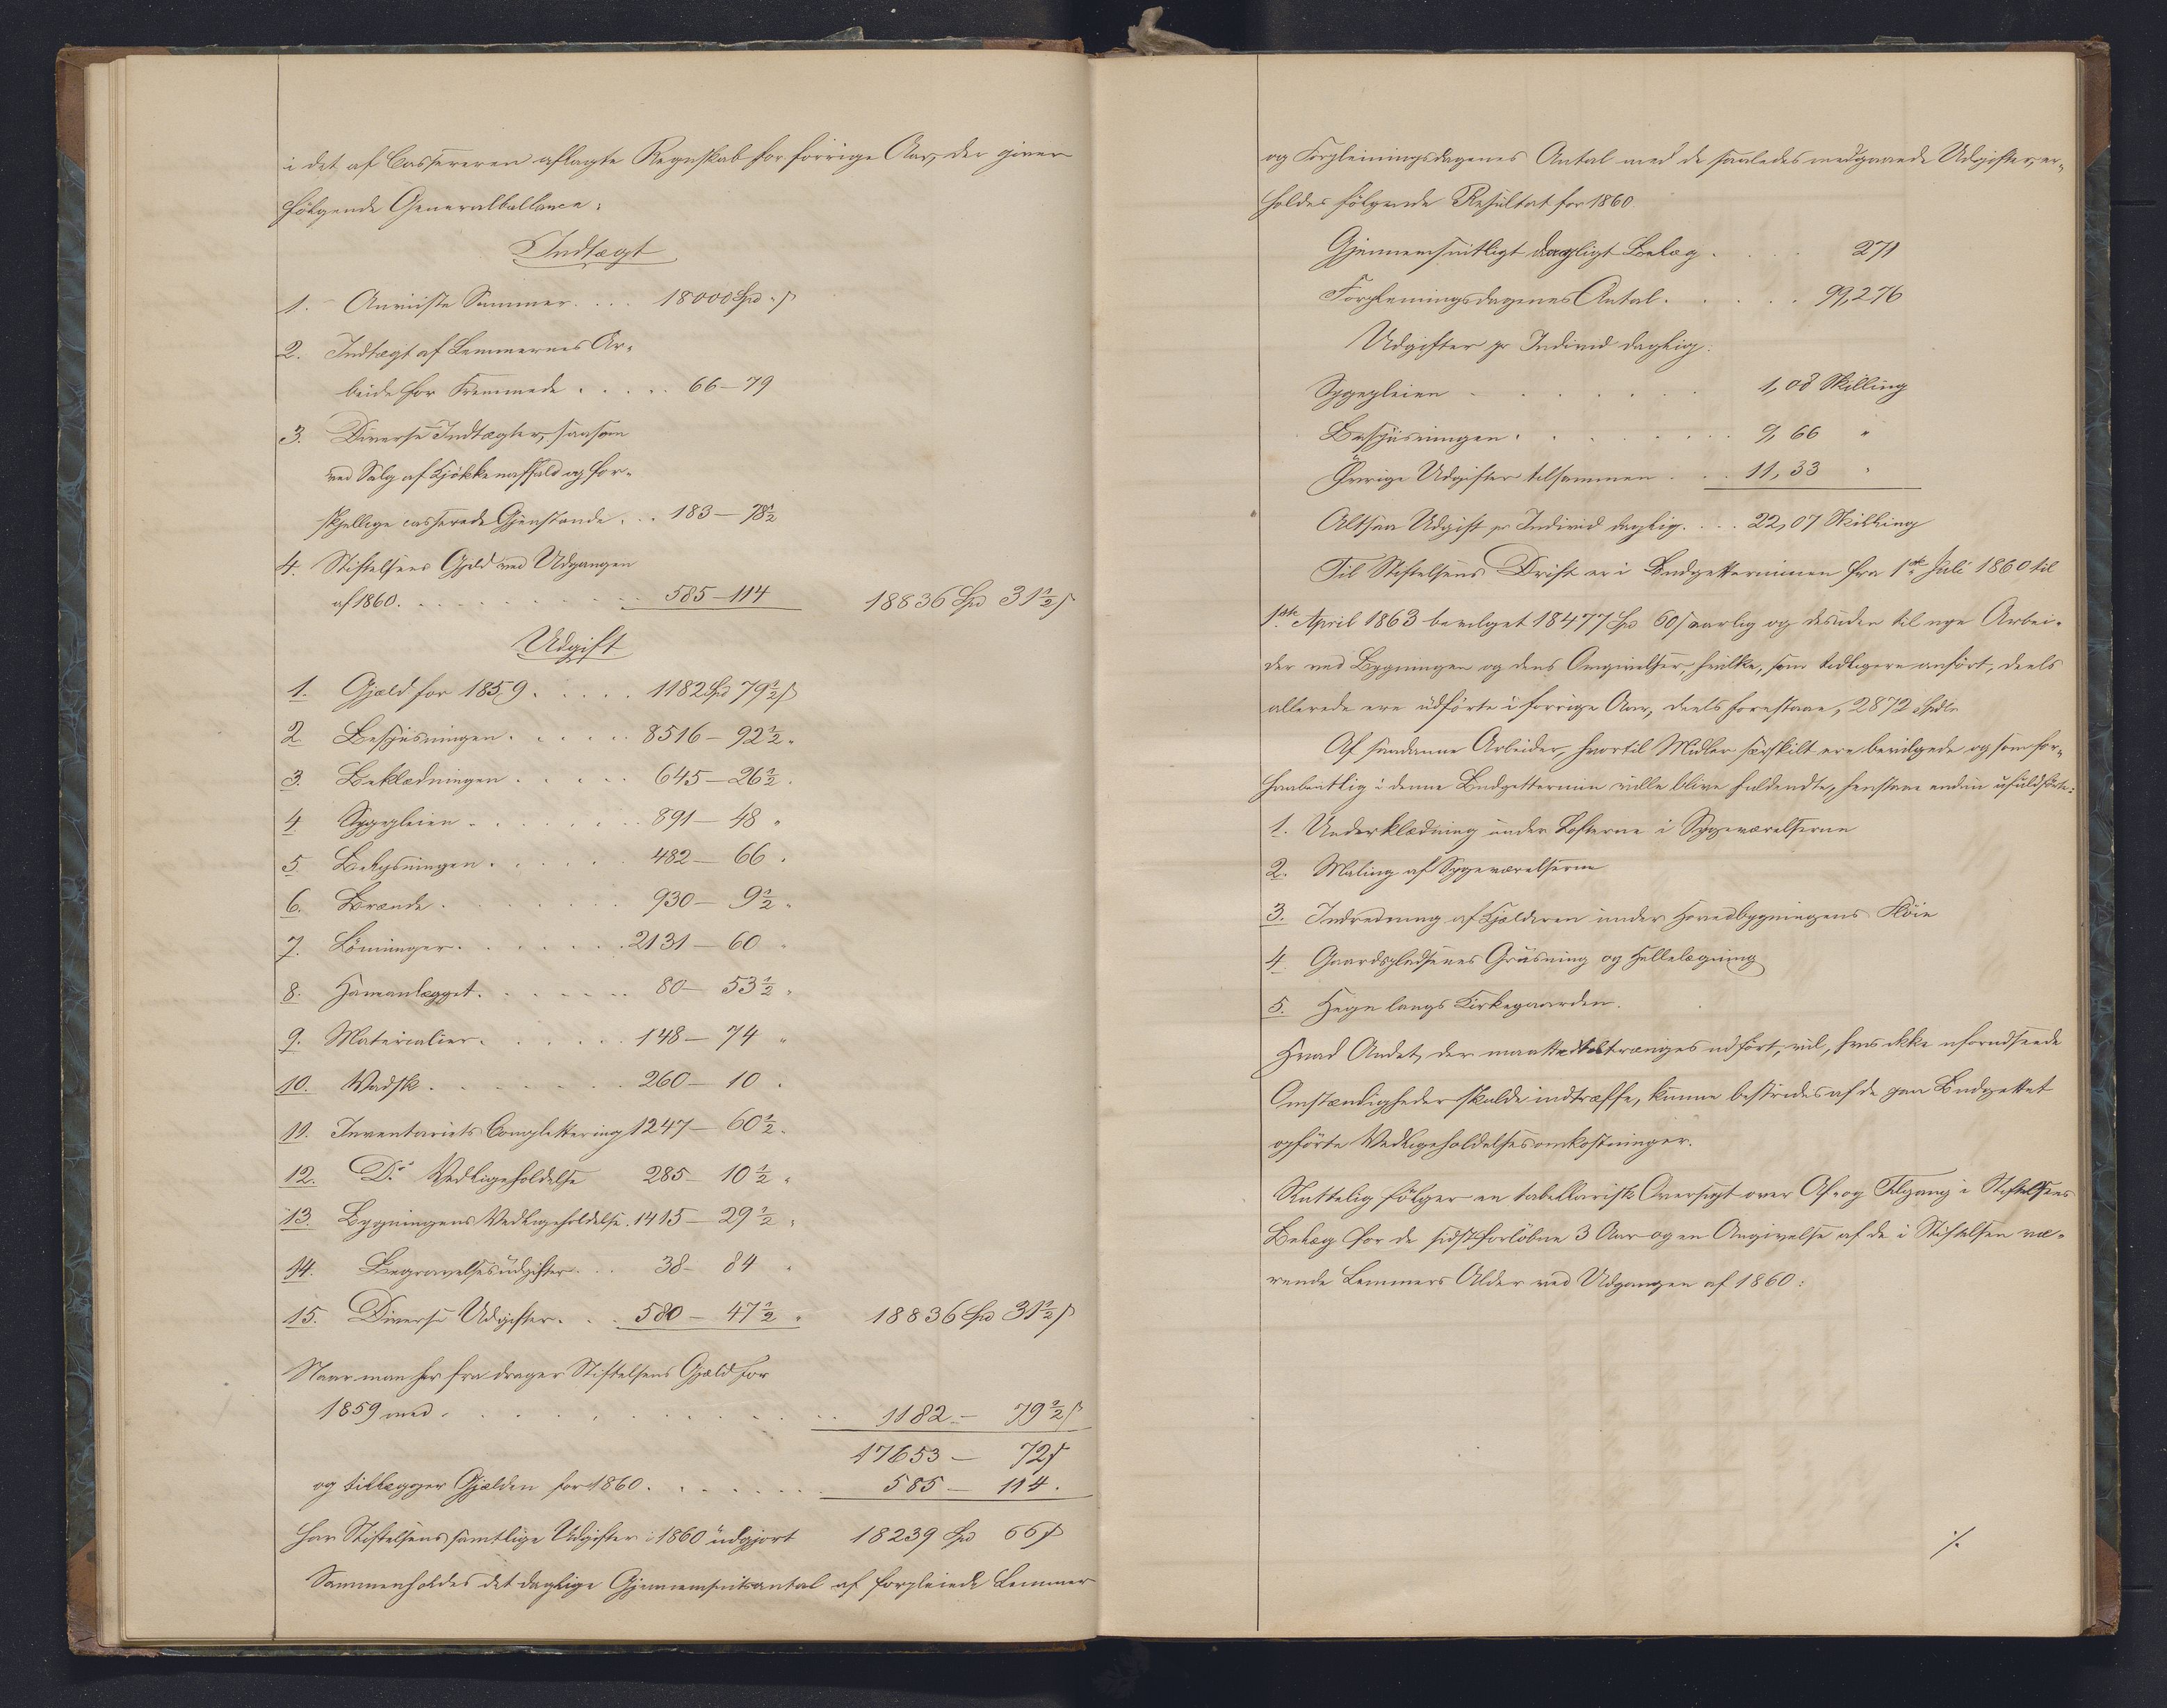 i det af Cassereren aflagte Regnskab for forrige Aar, der giver
følgende Generalballance:
Indtægt
1. Anviiste Summer.... 18000 Spd. ß
2. Indtægt af Lemmernes Ar-
beide for Fremmede..... 66 - 79
3. Diverse Indtægter, saasom
ved Salg af Kjøkkenaffald og for-
skjellige casserede Gjenstande... 183 - 78½
4. Stiftelsens Gjeld ved Udgangen
af 1860. 585 - 114 18836 Spd 31½ ß
Udgift
1. Gjæld for 1859..... 1182 Spd 79½ ß
2. Bespiisningen..... 8516 - 92½ "
3. Beklædningen..... 645 - 26½ "
4. Sygepleien..... 891 - 48 "
5. Belysningen..... 482 - 66 "
6. Brænde..... 930 - 9½ "
7. Lönninger..... 2131 - 60 "
8. Haveanlægget..... 80 - 53½ "
9. Materialier..... 148 - 74 "
10. Vadsk..... 260 - 10 "
11. Inventariets Complettering 1247 - 60½ "
12. Do Vedligeholdelse 285 - 10½ "
13. Bygningens Vedligeholdelse. 1415 - 29½ "
14. Begravelsesudgifter... 38 - 84 "
15. Diverse Udgifter... 580 - 47½ " 18836 Spd 31½ ß
Naar man her fra drager Stiftelsens Gjæld for
1859 med..... 1182 - 79½ ß
17653 - 72 ß
og tillægger Gjælden for 1860..... 585 - 114.
har Stiftelsens samtlige Udgifter i 1860 udgjort 18239 Spd 66 ß
Sammenholdes det daglige Gjennemsnitsantal af forpleiede Lemmer
og Forpleiningsdagenes Antal med de saaledes medgaaede Udgifter, er-
holdes følgende Resultat for 1860
Gjennemsnitligt dagligt Belæg.... 271
Forpleiningsdagenes Antal..... 99,276
Udgifter pr Individ daglig:
Sygepleien..... 1,08 Skilling
Bespiisningen..... 9,66 "
Øvrige Udgifter tilsammen... 11,33 "
Altsaa Udgift pr Individ daglig.... 22,07 Skilling
Til Stiftelsens Drift er i Budgetterminen fra 1ste Juli 1860 til
1ste April 1863 bevilget 18477 Spd 60 ß aarlig og desuden til nye Arbei-
der ved Bygningen og dens Omgivelser, hvilke, som tidligere anført, deels
allerede ere udførte i forrige Aar, deels forestaae, 2872 Spdlr
Af saadanne Arbeider, hvortil Midler særskilt ere bevilgede og som for-
haabentlig i denne Budgettermin ville blive fuldendte, henstaae endnu ufuldførte:
1. Underklædning under Lofterne i Sygeværelserne
2. Maling af Sygeværelserne
3. Indredning af Kjælderen under Hovedbygningens Fløie
4. Gaardspladsenes Gruusning og Hellelægning
5. Hegn langs Kirkegaarden.
Hvad Andet, der maatte tiltrænges udført, vil, hvis ikke uforudseede
Omstændigheder skulde indtræffe, kunne bestrides af de paa Budgettet
opførte Vedligeholdelsesomkostninger.
Sluttelig følger en tabellarisk Oversigt over Af- og Tilgang i Stiftelsens
Belæg for de sidst forløbne 3 Aar og en Angivelse af de i Stiftelsen væ-
rende Lemmers Alder ved Udgangen af 1860:
./.